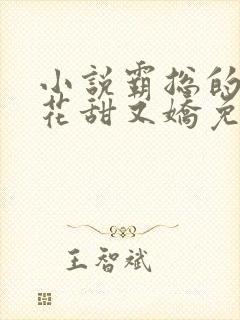 小說霸總的
花甜又嬌免
王智斌